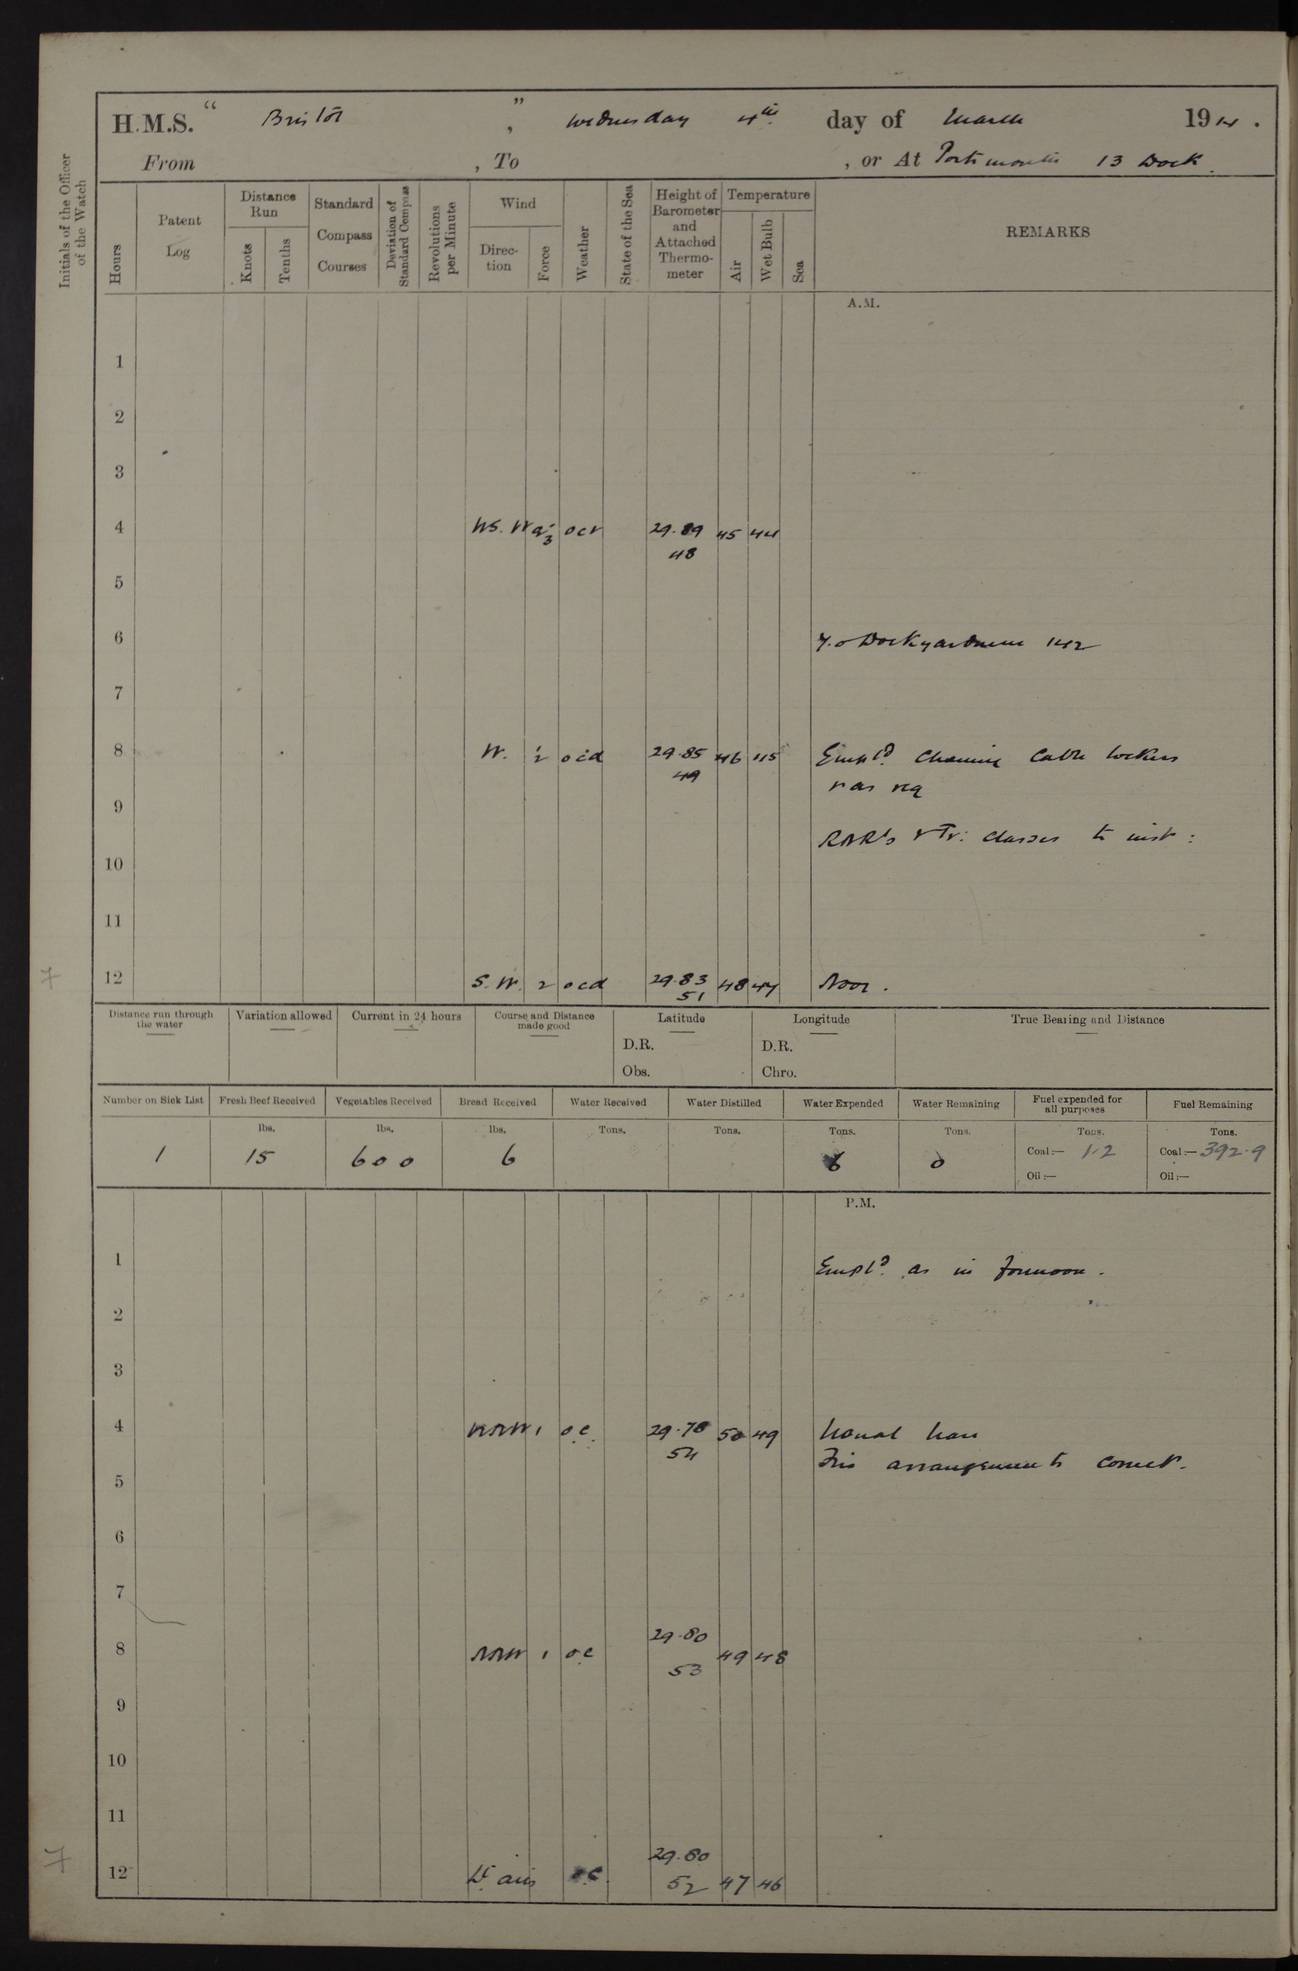 H.M.S. " Bristol ", Wednesday 4th day of March 1914.
From , To , or At Portsmouth 13 Dock.
Initials of the Officer of the Watch
Hours
Patent Log
Distance Run
Knots
Tenths
Standard Compass Courses
Deviation of Standard Compass
Revolutions per Minute
Wind
Direction
Force
Weather
State of the Sea
Height of Barometer and Attached Thermometer
Temperature
Air
Wet Bulb
Sea
REMARKS
A.M.
1
2
3
4 WS.W 2-3 ocr 29.89 45 44
48
5
6 Dockyardmen 142
7
8 W. 1-2 ocd 29.85 46 45 Empld. Cable lockers
49 & as req
9
RNR's & Tr: classes to inst:
10
11
12 S.W. 2 ocd 29.83 48 47 Noon.
51
7
Distance run through the water
Variation allowed
Current in 24 hours
Course and Distance made good
Latitude
D.R.
Obs.
Longitude
D.R.
Chro.
True Bearing and Distance
Number on Sick List Fresh Beef Received Vegetables Received Bread Received Water Received Water Distilled Water Expended Water Remaining Fuel expended for all purposes Fuel Remaining
lbs. lbs. lbs. Tons. Tons. Tons. Tons. Tons. Tons.
1 15 600 6 6 0 Coal:— 1.2 Coal:— 392.9
Oil:— Oil:—
P.M.
1 Empld. as in forenoon.
2
3
4 WNW 1 o.c. 29.78 50 49
54 Fire arrangements correct.
5
6
7
8 NNW 1 o.c 29.80 49 48
53
9
10
11
12 Lt. airs o.c. 29.80 47 46
52
7